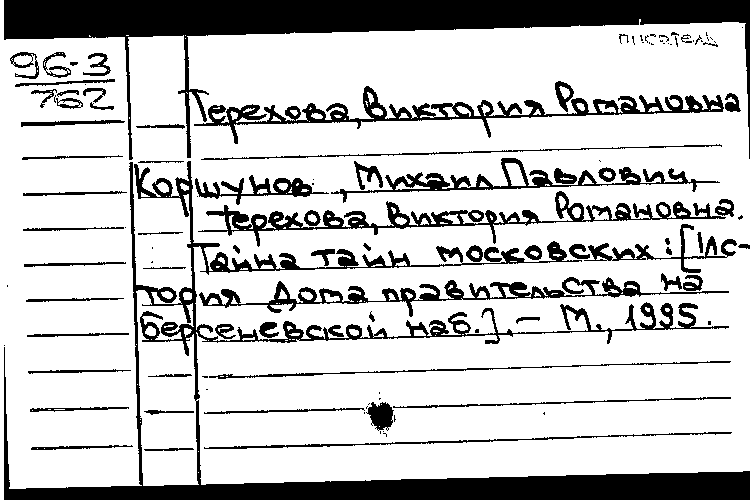 писатель
96-3
762
Терехова, Виктория Романовна
Коршунов, Михаил Павлович,
Терехова, Виктория Романовна.
Тайна тайн московских : [Ис-
тория Дома правительства на
Берсеневской наб.]. – М., 1995.